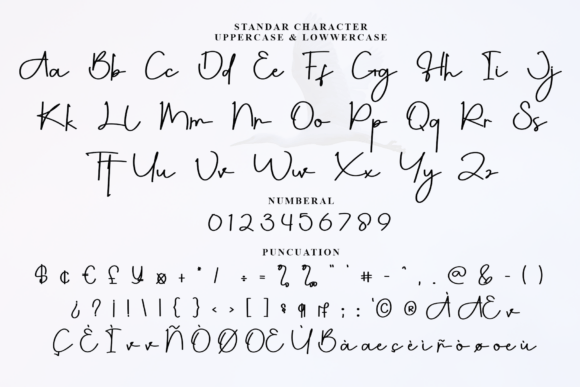 STANDAR CHARACTER
UPPERCASE & LOWWERCASE
Aa Bb Cc Dd Ee Ff Gg Hh Ii Jj
Kk Ll Mm Nn Oo Pp Qq Rr Ss
Tt Uu Vv Ww Xx Yy Zz
NUMBERAL
0123456789
PUNCUATION
$ ¢ € £ ¥ ¤ + * / ÷ = % ‰ " ' # - ^ , . @ & - ( )
¿ ? ¡ ! \ | { } < > [ ] § ¶ ; : ' © ® À Æ
Ç È Ì Ñ Ò Ø Œ Ù B à æ ç è ì ñ ò ø œ ù